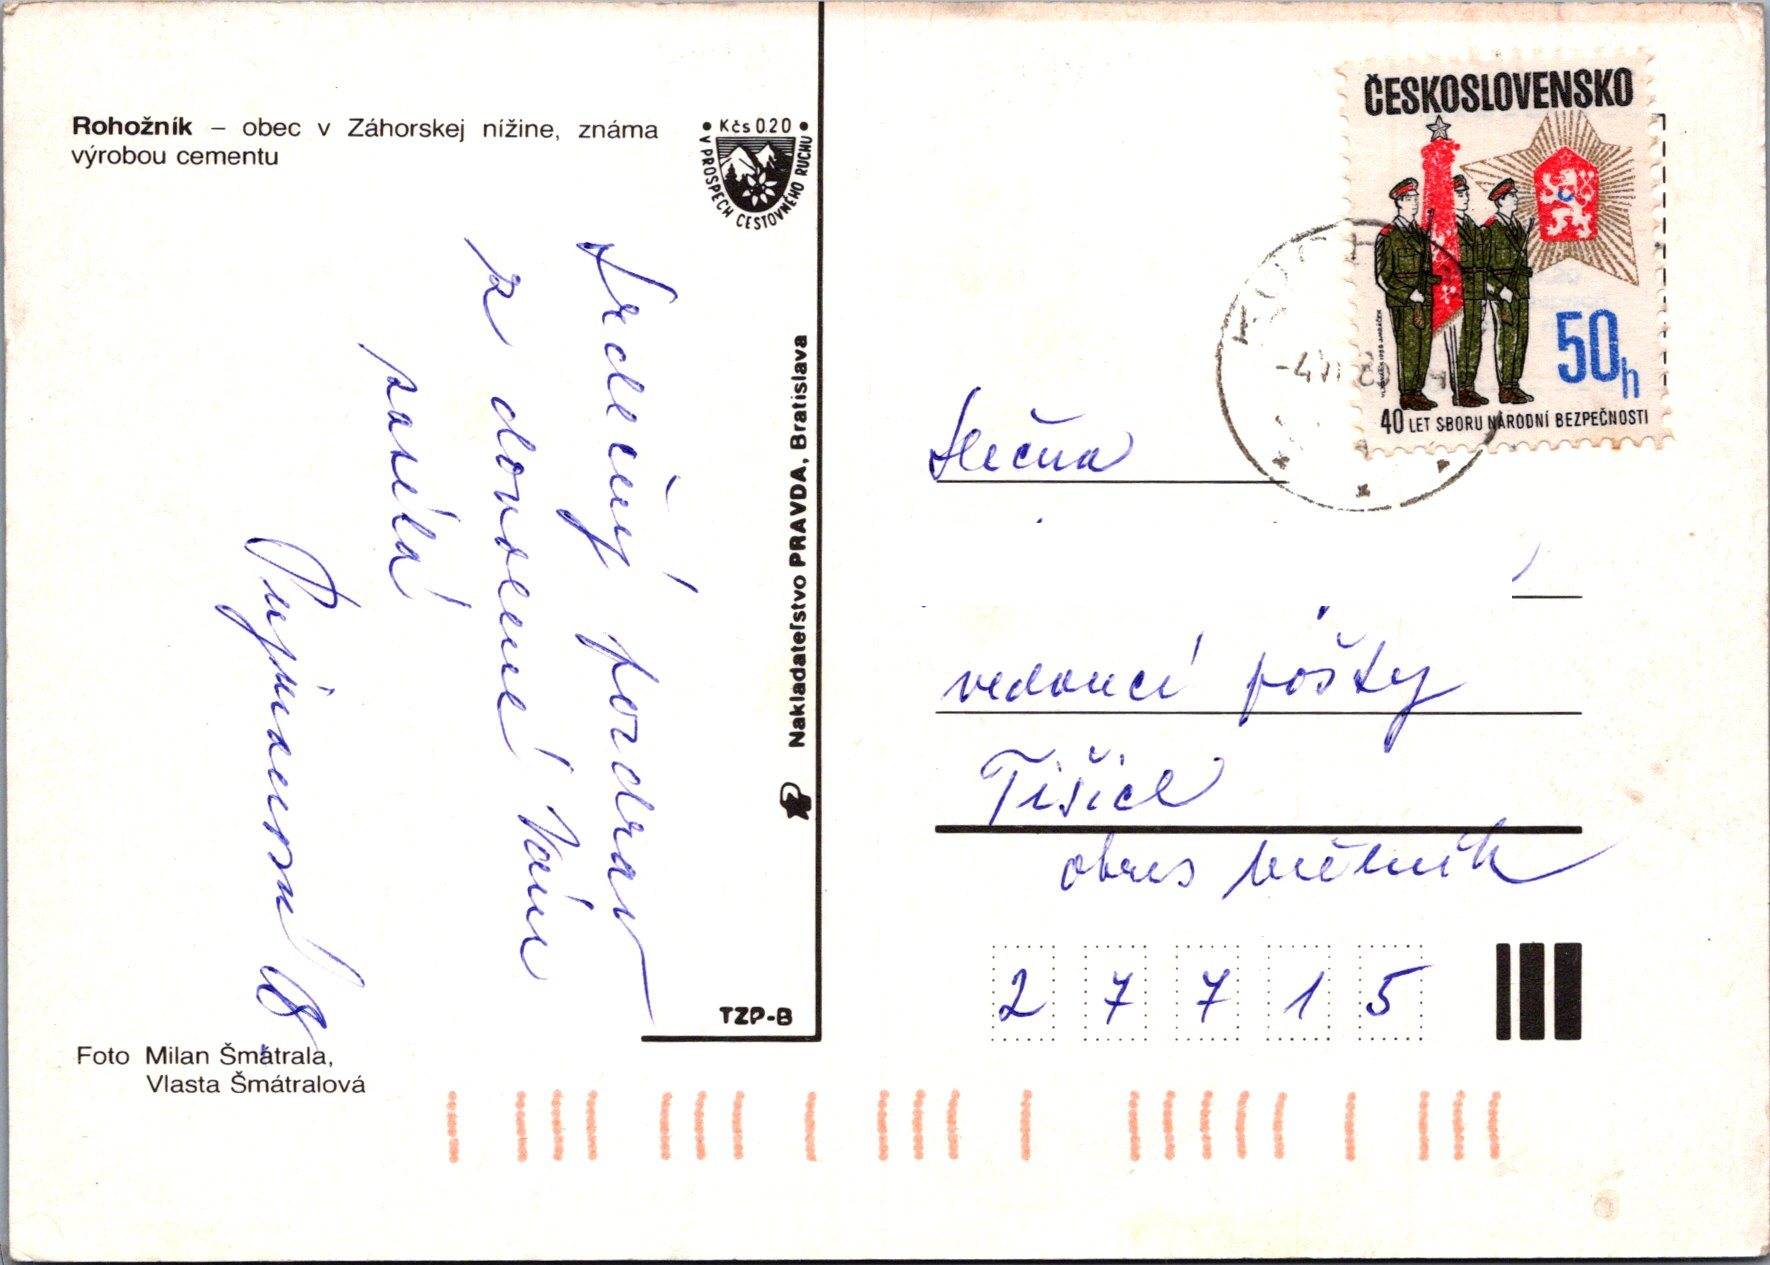 Rohožník – obec v Záhorskej nížine, známa
výrobou cementu
• Kčs 0.20 •
V PROSPECH CESTOVNÉHO RUCHU
Srdečný pozdrav
z dovolené Vám
zasélá
Nakladateľstvo PRAVDA, Bratislava
TZP-B
Foto Milan Šmátrala,
Vlasta Šmátralová
ČESKOSLOVENSKO
50h
40 LET SBORU NÁRODNÍ BEZPEČNOSTI
Slečna
vedoucí pošty
Tišice
okres Mělník
27715